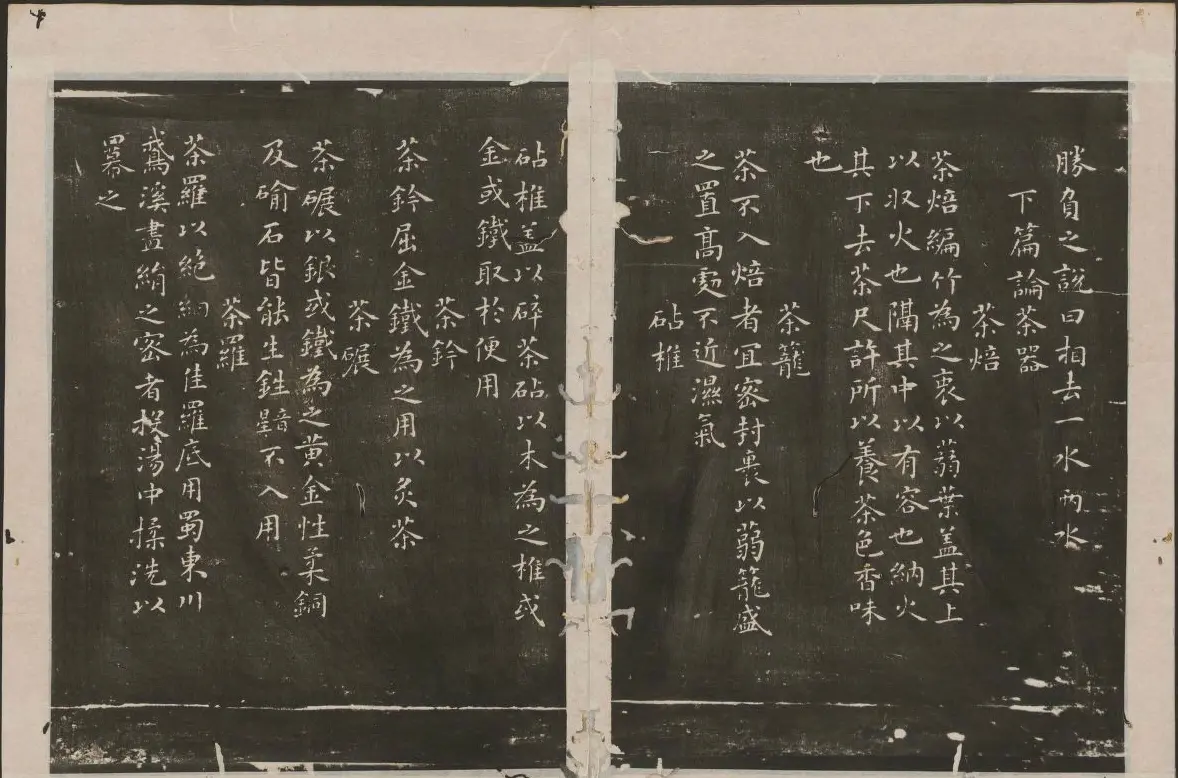 勝負之說曰相去一水兩水
下篇論茶器
茶焙
茶焙編竹為之裹以蒻葉盖其上
以収火也隔其中以有容也納火
其下去茶尺許所以養茶色香味
也
茶籠
茶不入焙者宜密封裹以蒻籠盛
之置高處不近濕氣
砧椎
砧椎盖以碎茶砧以木為之椎或
金或鐵取於便用
茶鈐
茶鈐屈金鐵為之用以炙茶
茶碾
茶碾以銀或鐵為之黄金性柔銅
及碖石皆能生鉎不入用
茶羅
茶羅以絶細為佳羅底用蜀東川
鵞溪畫絹之密者投湯中揉洗以
羃之